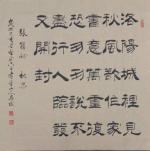 洛陽城裡見
秋風欲作家
書意萬重復
恐匆匆說不
盡行人臨發
又開封
張籍詩 秋思